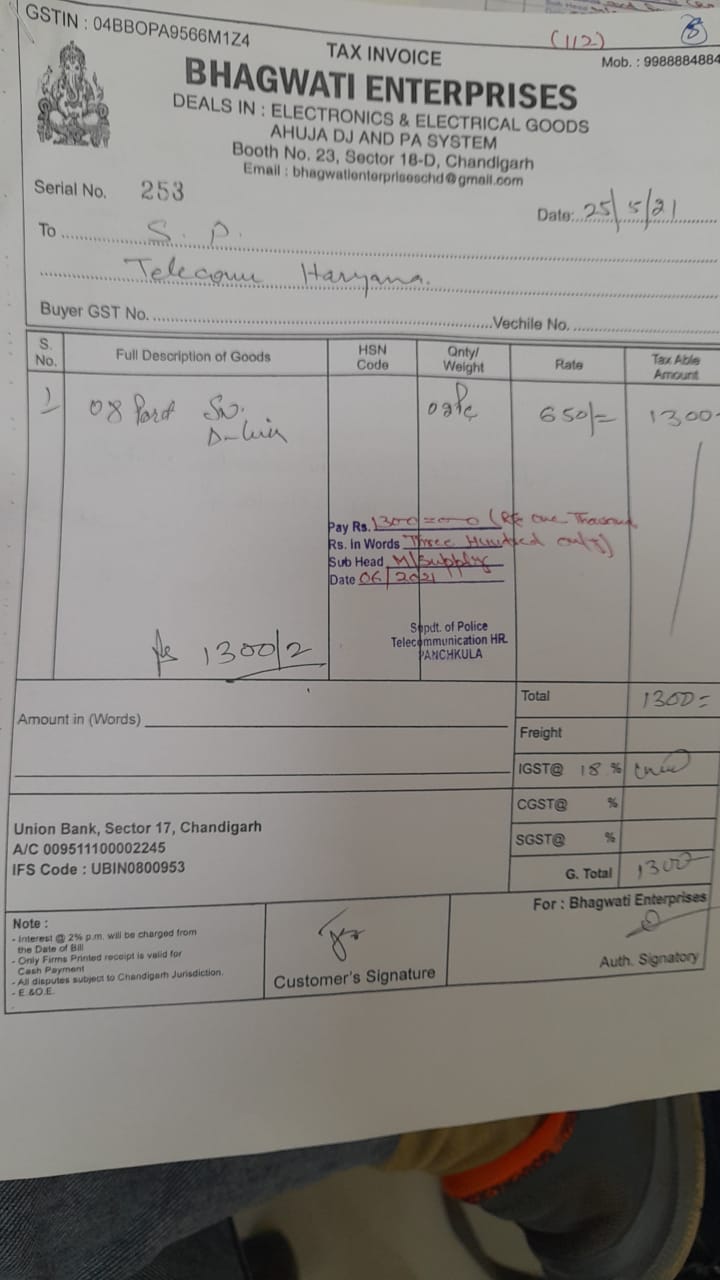 GSTIN : 04BBOPA9566M1Z4
(112)
8
TAX INVOICE
Mob. : 9988884884
BHAGWATI ENTERPRISES
DEALS IN : ELECTRONICS & ELECTRICAL GOODS
AHUJA DJ AND PA SYSTEM
Booth No. 23, Sector 18-D, Chandigarh
Email : bhagwatienterpriseschd@gmail.com
Serial No. 253
Date: 25/5/21
To S. P.
Telecom Haryana.
Buyer GST No.
Vechile No.
S. No. Full Description of Goods HSN Code Qnty/ Weight Rate Tax Able Amount
1 08 Port Sw. 02Pc 650/= 1300
D-Link
Pay Rs. 1300=00 (Rs one Thousand
Rs. in Words Three Hundred only)
Sub Head M/Supply
Date 06/2021
Supdt. of Police
Telecommunication HR.
PANCHKULA
Rs 1300/2
Total 1300=
Amount in (Words)
Freight
IGST@ 18 %
CGST@ %
SGST@ %
G. Total 1300
Union Bank, Sector 17, Chandigarh
A/C 009511100002245
IFS Code : UBIN0800953
Note :
- Interest @ 2% p.m. will be charged from
the Date of Bill
- Only Firms Printed receipt is valid for
Cash Payment
- All disputes subject to Chandigarh Jurisdiction.
- E.&O.E.
Customer's Signature
For : Bhagwati Enterprises
Auth. Signatory